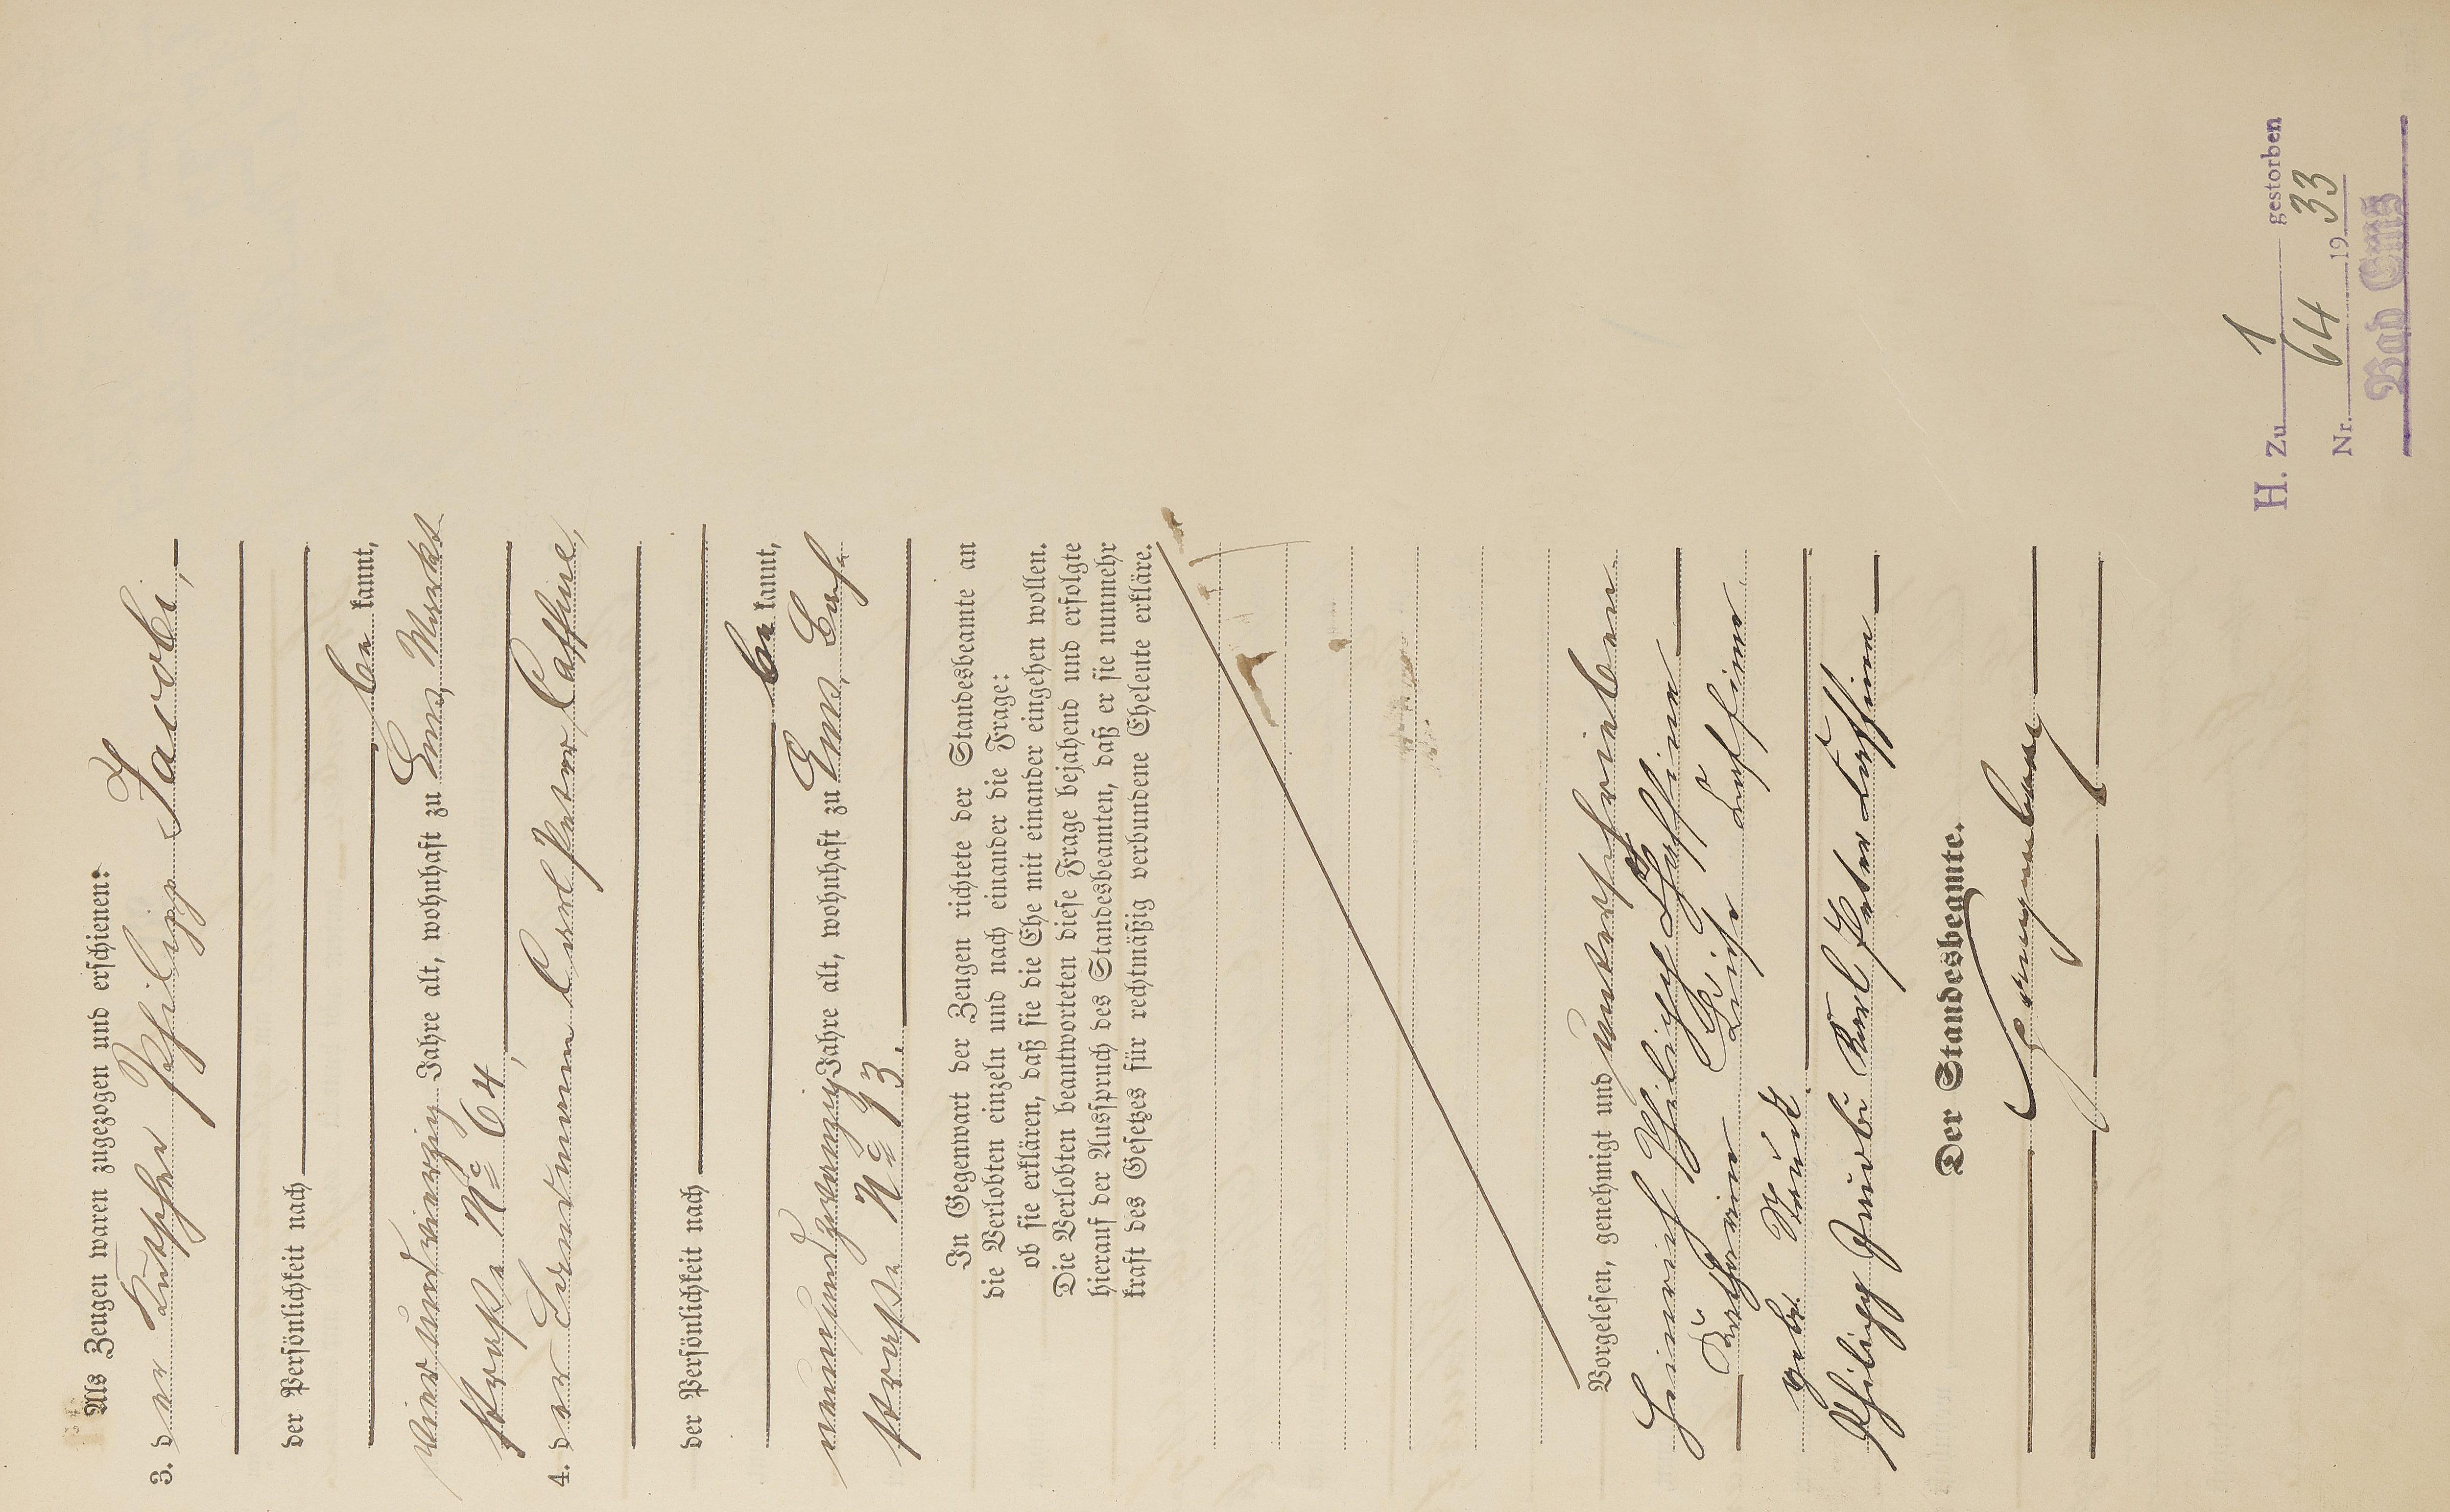 Als Zeugen waren zugezogen und erschienen:
3. der Küpher Philipp Jacobi,
der Persönlichkeit nach
be kannt,
vierundvierzig Jahre alt, wohnhaft zu Ems, Markt
straße No 64,
4. der Carl Peter Casfine,
der Persönlichkeit nach
be kannt,
neunundzwanzig Jahre alt, wohnhaft zu Ems, Bach
straße No 13.
In Gegenwart der Zeugen richtete der Standesbeamte an
die Verlobten einzeln und nach einander die Frage:
ob sie erklären, daß sie die Ehe mit einander eingehen wollen.
Die Verlobten beantworteten diese Frage bejahend und erfolgte
hierauf der Ausspruch des Standesbeamten, daß er sie nunmehr
kraft des Gesetzes für rechtmäßig verbundene Eheleute erkläre.
Vorgelesen, genehmigt und unterschrieben.
Heinrich Philipp
Katharine
gebr.
Philipp Jacobi Karl Peter
Der Standesbeamte.
H. Zu 1 gestorben
Nr. 64 1933
Bad Ems